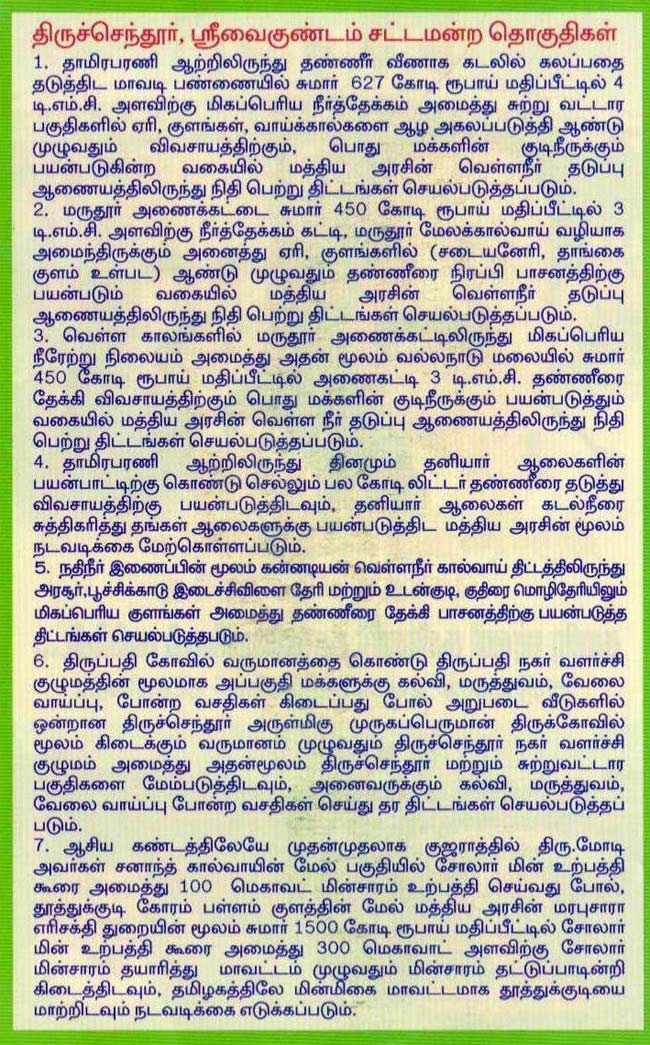 திருச்செந்தூர், ஸ்ரீவைகுண்டம் சட்டமன்ற தொகுதிகள்
1. தாமிரபரணி ஆற்றிலிருந்து தண்ணீர் வீணாக கடலில் கலப்பதை
தடுத்திட மாவடி பண்ணையில் சுமார் 627 கோடி ரூபாய் மதிப்பீட்டில் 4
டி.எம்.சி. அளவிற்கு மிகப்பெரிய நீர்த்தேக்கம் அமைத்து சுற்று வட்டார
பகுதிகளில் ஏரி, குளங்கள், வாய்க்கால்களை ஆழ அகலப்படுத்தி ஆண்டு
முழுவதும் விவசாயத்திற்கும், பொது மக்களின் குடிநீருக்கும்
பயன்படுகின்ற வகையில் மத்திய அரசின் வெள்ளநீர் தடுப்பு
ஆணையத்திலிருந்து நிதி பெற்று திட்டங்கள் செயல்படுத்தப்படும்.
2. மருதூர் அணைக்கட்டை சுமார் 450 கோடி ரூபாய் மதிப்பீட்டில் 3
டி.எம்.சி. அளவிற்கு நீர்த்தேக்கம் கட்டி, மருதூர் மேலக்கால்வாய் வழியாக
அமைந்திருக்கும் அனைத்து ஏரி, குளங்களில் (சடையனேரி, தாங்கை
குளம் உள்பட) ஆண்டு முழுவதும் தண்ணீரை நிரப்பி பாசனத்திற்கு
பயன்படும் வகையில் மத்திய அரசின் வெள்ளநீர் தடுப்பு
ஆணையத்திலிருந்து நிதி பெற்று திட்டங்கள் செயல்படுத்தப்படும்.
3. வெள்ள காலங்களில் மருதூர் அணைக்கட்டிலிருந்து மிகப்பெரிய
நீரேற்று நிலையம் அமைத்து அதன் மூலம் வல்லநாடு மலையில் சுமார்
450 கோடி ரூபாய் மதிப்பீட்டில் அணைகட்டி 3 டி.எம்.சி. தண்ணீரை
தேக்கி விவசாயத்திற்கும் பொது மக்களின் குடிநீருக்கும் பயன்படுத்தும்
வகையில் மத்திய அரசின் வெள்ள நீர் தடுப்பு ஆணையத்திலிருந்து நிதி
பெற்று திட்டங்கள் செயல்படுத்தப்படும்.
4. தாமிரபரணி ஆற்றிலிருந்து தினமும் தனியார் ஆலைகளின்
பயன்பாட்டிற்கு கொண்டு செல்லும் பல கோடி லிட்டர் தண்ணீரை தடுத்து
விவசாயத்திற்கு பயன்படுத்திடவும், தனியார் ஆலைகள் கடல்நீரை
சுத்திகரித்து தங்கள் ஆலைகளுக்கு பயன்படுத்திட மத்திய அரசின் மூலம்
நடவடிக்கை மேற்கொள்ளப்படும்.
5. நதிநீர் இணைப்பின் மூலம் கன்னடியன் வெள்ளநீர் கால்வாய் திட்டத்திலிருந்து
அரசூர்,பூச்சிக்காடு இடைச்சிவிளை தேரி மற்றும் உடன்குடி, குதிரை மொழிதேரியிலும்
மிகப்பெரிய குளங்கள் அமைத்து தண்ணீரை தேக்கி பாசனத்திற்கு பயன்படுத்த
திட்டங்கள் செயல்படுத்தபடும்.
6. திருப்பதி கோவில் வருமானத்தை கொண்டு திருப்பதி நகர் வளர்ச்சி
குழுமத்தின் மூலமாக அப்பகுதி மக்களுக்கு கல்வி, மருத்துவம், வேலை
வாய்ப்பு, போன்ற வசதிகள் கிடைப்பது போல் அறுபடை வீடுகளில்
ஒன்றான திருச்செந்தூர் அருள்மிகு முருகப்பெருமான் திருக்கோவில்
மூலம் கிடைக்கும் வருமானம் முழுவதும் திருச்செந்தூர் நகர் வளர்ச்சி
குழுமம் அமைத்து அதன்மூலம் திருச்செந்தூர் மற்றும் சுற்றுவட்டார
பகுதிகளை மேம்படுத்திடவும், அனைவருக்கும் கல்வி, மருத்துவம்,
வேலை வாய்ப்பு போன்ற வசதிகள் செய்து தர திட்டங்கள் செயல்படுத்தப்
படும்.
7. ஆசிய கண்டத்திலேயே முதன்முதலாக குஜராத்தில் திரு.மோடி
அவர்கள் சனாந்த் கால்வாயின் மேல் பகுதியில் சோலார் மின் உற்பத்தி
கூரை அமைத்து 100 மெகாவட் மின்சாரம் உற்பத்தி செய்வது போல்,
தூத்துக்குடி கோரம் பள்ளம் குளத்தின் மேல் மத்திய அரசின் மரபுசாரா
எரிசக்தி துறையின் மூலம் சுமார் 1500 கோடி ரூபாய் மதிப்பீட்டில் சோலார்
மின் உற்பத்தி கூரை அமைத்து 300 மெகாவாட் அளவிற்கு சோலார்
மின்சாரம் தயாரித்து மாவட்டம் முழுவதும் மின்சாரம் தட்டுப்பாடின்றி
கிடைத்திடவும், தமிழகத்திலே மின்மிகை மாவட்டமாக தூத்துக்குடியை
மாற்றிடவும் நடவடிக்கை எடுக்கப்படும்.